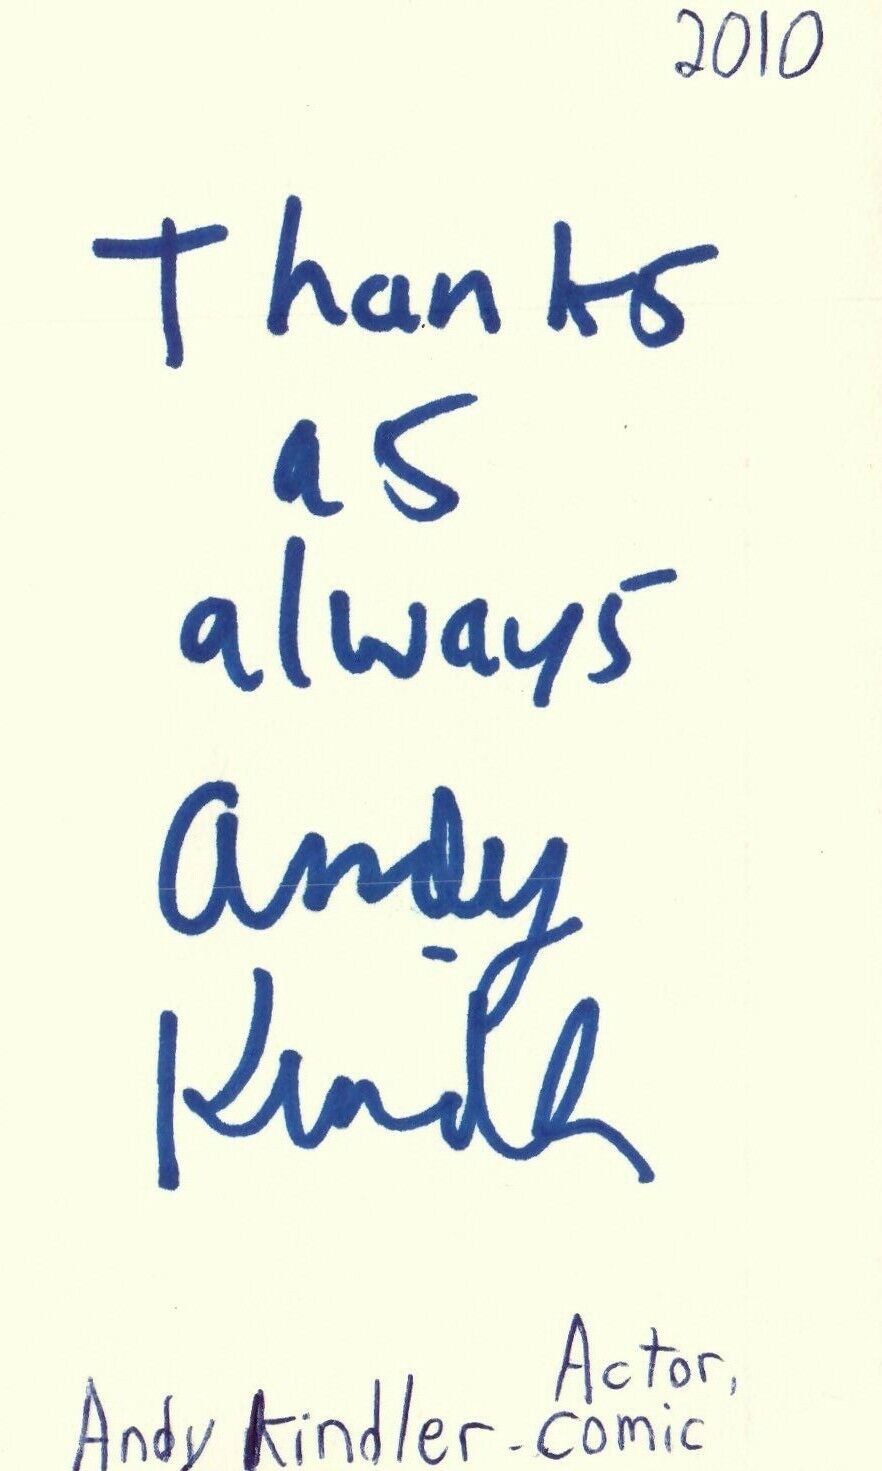 2010
Thanks
as
always
Andy
Kindler
Actor,
Andy Kindler - Comic